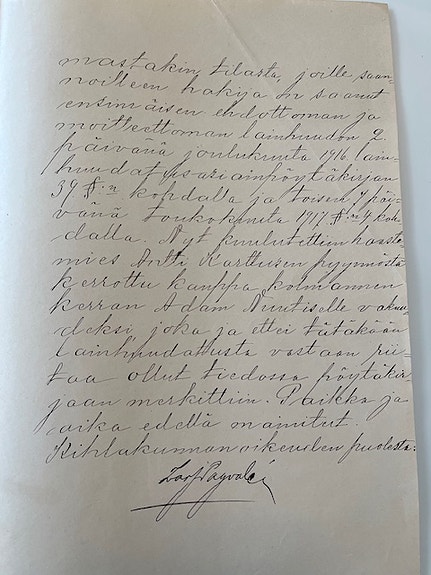 mastakin tilasta, joille saan-
noilleen hakija on saanut
ensimäisen ehdottoman ja
moitteettoman lainhuudon 2
päivänä joulukuuta 1916 lain-
huudatusasiainpöytäkirjan
39 §:n kohdalla ja toisen 7 päi-
vänä toukokuuta 1917 §:n 4 koh-
dalla. Nyt kuulutettiin
mies Antti Karttusen pyynnöstä
kerrottu kauppa kolmannen
kerran Adam Nuutiselle vakuu-
deksi, joka ja ettei tätäkään
lainhuudatusta vastaan rii-
taa ollut tiedossa pöytäkir-
jaan merkittiin. Paikka ja
aika edellä mainitut.
Kihlakunnanoikeuden puolesta: